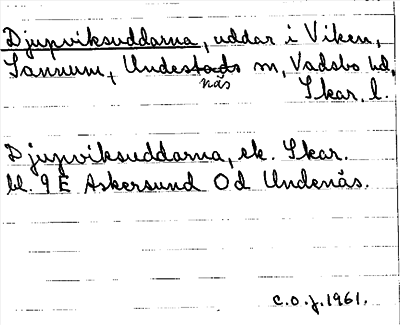 Djupviksuddarna, uddar i Viken,
Sannum, Undestads m, Vadsbo hd,
näs
Skar. l.
Djupviksuddarna, ek. Skar.
bl. 9 E Askersund Od Undenäs.
c.o.j. 1961.